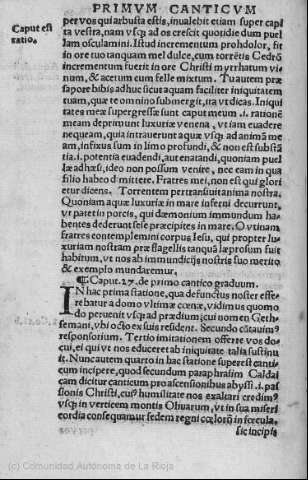 PRIMVM CANTICVM
Caput est
ratio.
per vos qui arbusta estis, inualebit etiam super capi
ta vestra, nam vsq; ad os crescit quotidie dum puel
lam osculamini. Istud incrementum prohdolor, fit
in ore tuo tanquam mel dulce, cum torrētis Cedrō
incrementum fuerit in ore Christi myrrhatum vi
num, & acetum cum felle mixtum. Tu autem præ
sapore bibis adhuc sicut aquam faciliter iniquitatem
tuam, quæ te omnino submergit, ita vt dicas. Iniqui
tates meæ supergressæ sunt caput meum .i. rationē
meam deprimunt luxuriæ venena, vt iam euadere
nequeam, quia intrauerunt aquæ vsq; ad animā me
am, infixus sum in limo profundi, & non est substā
tia .i. potentia euadendi, aut enatandi, quoniam puel
læ adhæsi, ideo non possum venire, nec eam in qua
filio habeo dimittere. Fratres mei, non est qui glori
etur dicens. Torrentem pertransiuit anima nostra.
Quoniam aquæ luxuriæ in mare inferni decurrunt,
vt patet in porcis, qui dæmonium immundum ha
bentes dederunt sese præcipites in mare. O vtinam
fratres contemplemini corpus Iesu, qui propter lu
xuriam nostram præ flagellis tanquā læprosum fuit
habitum, vt nos ab immundicijs nostris suo merito
& exemplo mundaremur.
¶ Caput. 27. de primo cantico graduum.
IN hac prima statione, qua defunctus noster effe
rebatur a domo vltimæ cœnæ, vidimus quomo
do peruenit vsq; ad prædium; cui nomen Geth-
semani, vbi octo ex suis resident. Secundo cātauimꝰ
responsorium. Tertio imitationem offerre vos do-
cui, ei qui vt nos educeret ab iniquitate talia sustinu
it. Nunc autem quarto in hac statione superest canti
cum incipere, quod secundum paraphrasim Caldai
cam dicitur canticum pro ascensionibus abyssi .i. pas
sionis Christi, cuiꝰ humilitate nos exaltari credimꝰ
vsq; in verticem montis Oliuarum, vt in sua miseri
cordia consequamur sedem regni cœlorū in secula.
sic incipis
(c) Comunidad Autónoma de La Rioja